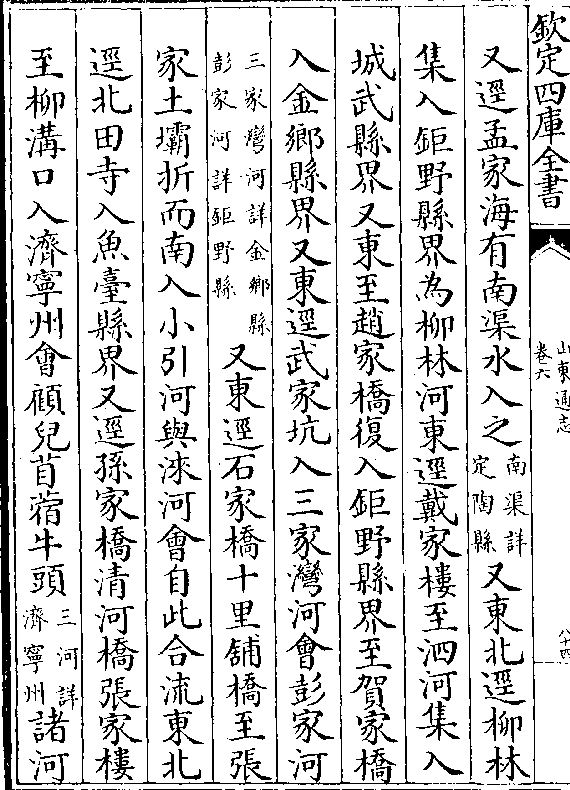 欽定四庫全書
山東通志
卷六
八十四
又逕孟家海有南渠水入之南渠詳定陶縣又東北逕柳林
集入鉅野縣界為柳林河東逕戴家樓至泗河集入
城武縣界又東至趙家橋復入鉅野縣界至賀家橋
入金鄉縣界又東逕武家坑入三家灣河會彭家河
三家灣河詳金鄉縣彭家河詳鉅野縣又東逕石家橋十里舖橋至張
家土壩折而南入小引河與淶河會自此合流東北
逕北田寺入魚臺縣界又逕孫家橋清河橋張家樓
至柳溝口入濟寧州會顧兒苜蓿牛頭三河詳濟寧州諸河